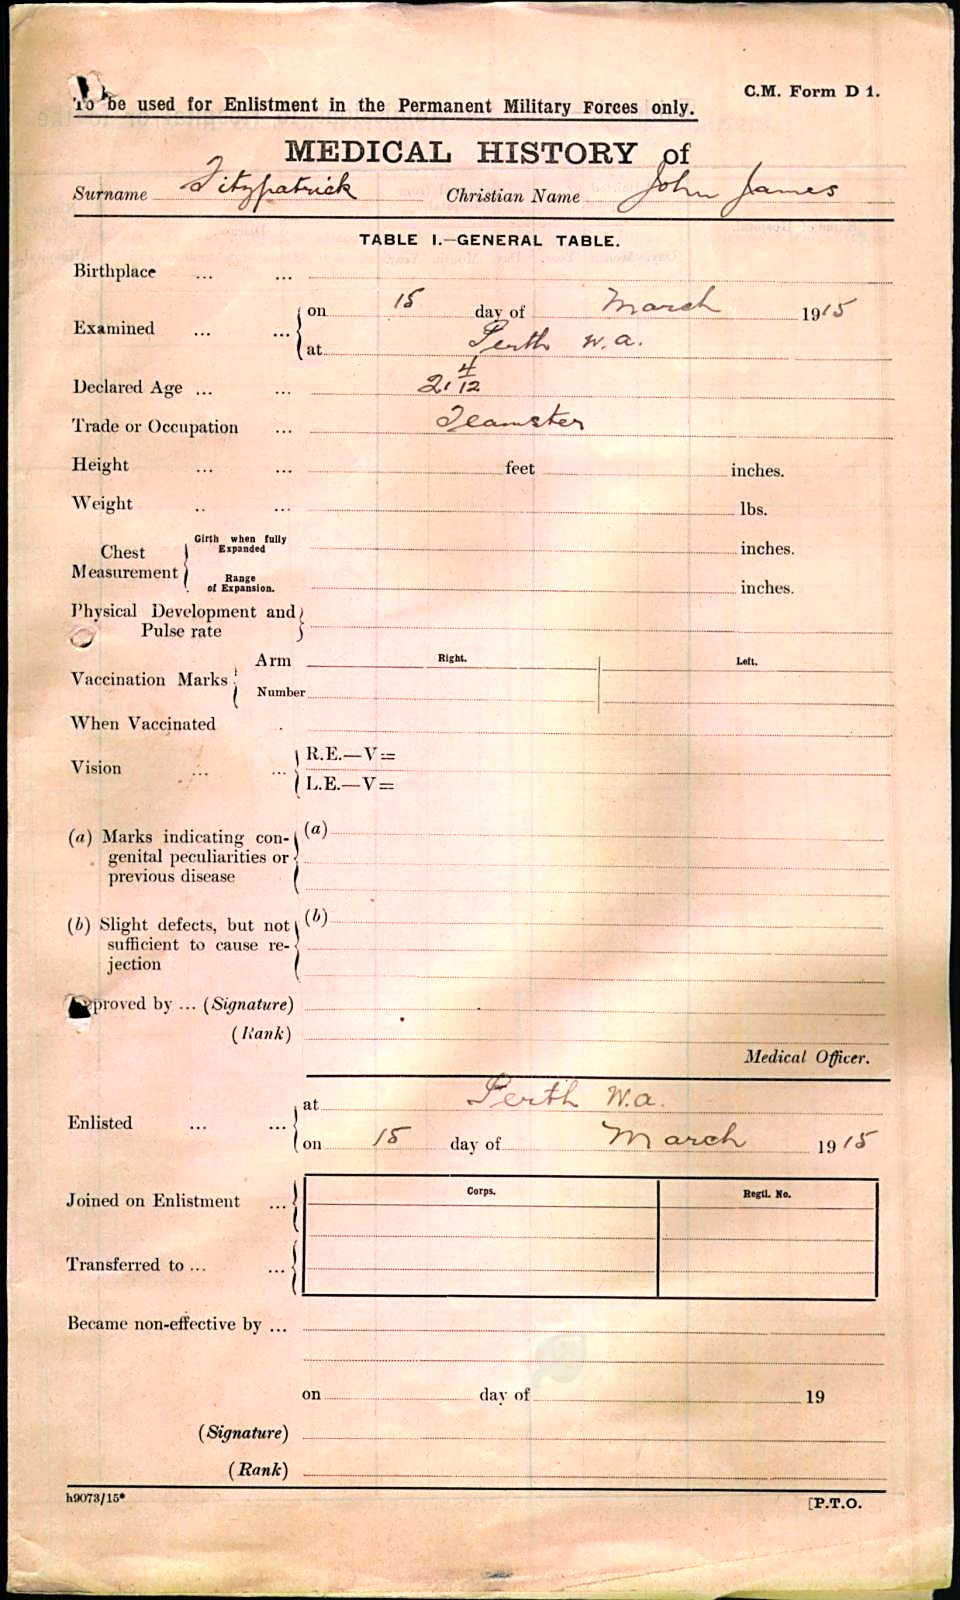 C.M. Form D 1.
To be used for Enlistment in the Permanent Military Forces only.
MEDICAL HISTORY of
Surname Fitzpatrick Christian Name John James
TABLE I.—GENERAL TABLE.
Birthplace ... ...
Examined ... ... on 15 day of March 1915
at Perth W.A.
Declared Age ... ... 21 4/12
Trade or Occupation ... Teamster
Height ... ... feet inches.
Weight .. ... lbs.
Chest Measurement Girth when fully Expanded inches.
Range of Expansion. inches.
Physical Development and
Pulse rate
Vaccination Marks Arm Right. Left.
Number
When Vaccinated .
Vision ... ... R.E.—V=
L.E.—V=
(a) Marks indicating con- (a)
genital peculiarities or
previous disease
(b) Slight defects, but not (b)
sufficient to cause re-
jection
Approved by ... (Signature)
(Rank)
Medical Officer.
Enlisted ... ... at Perth W.A.
on 15 day of March 1915
Corps. Regtl. No.
Joined on Enlistment ...
Transferred to ... ...
Became non-effective by ...
on day of 19
(Signature)
(Rank)
h9073/15*
[P.T.O.